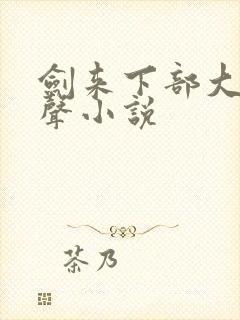 劍来下部大
聲小説
茶乃